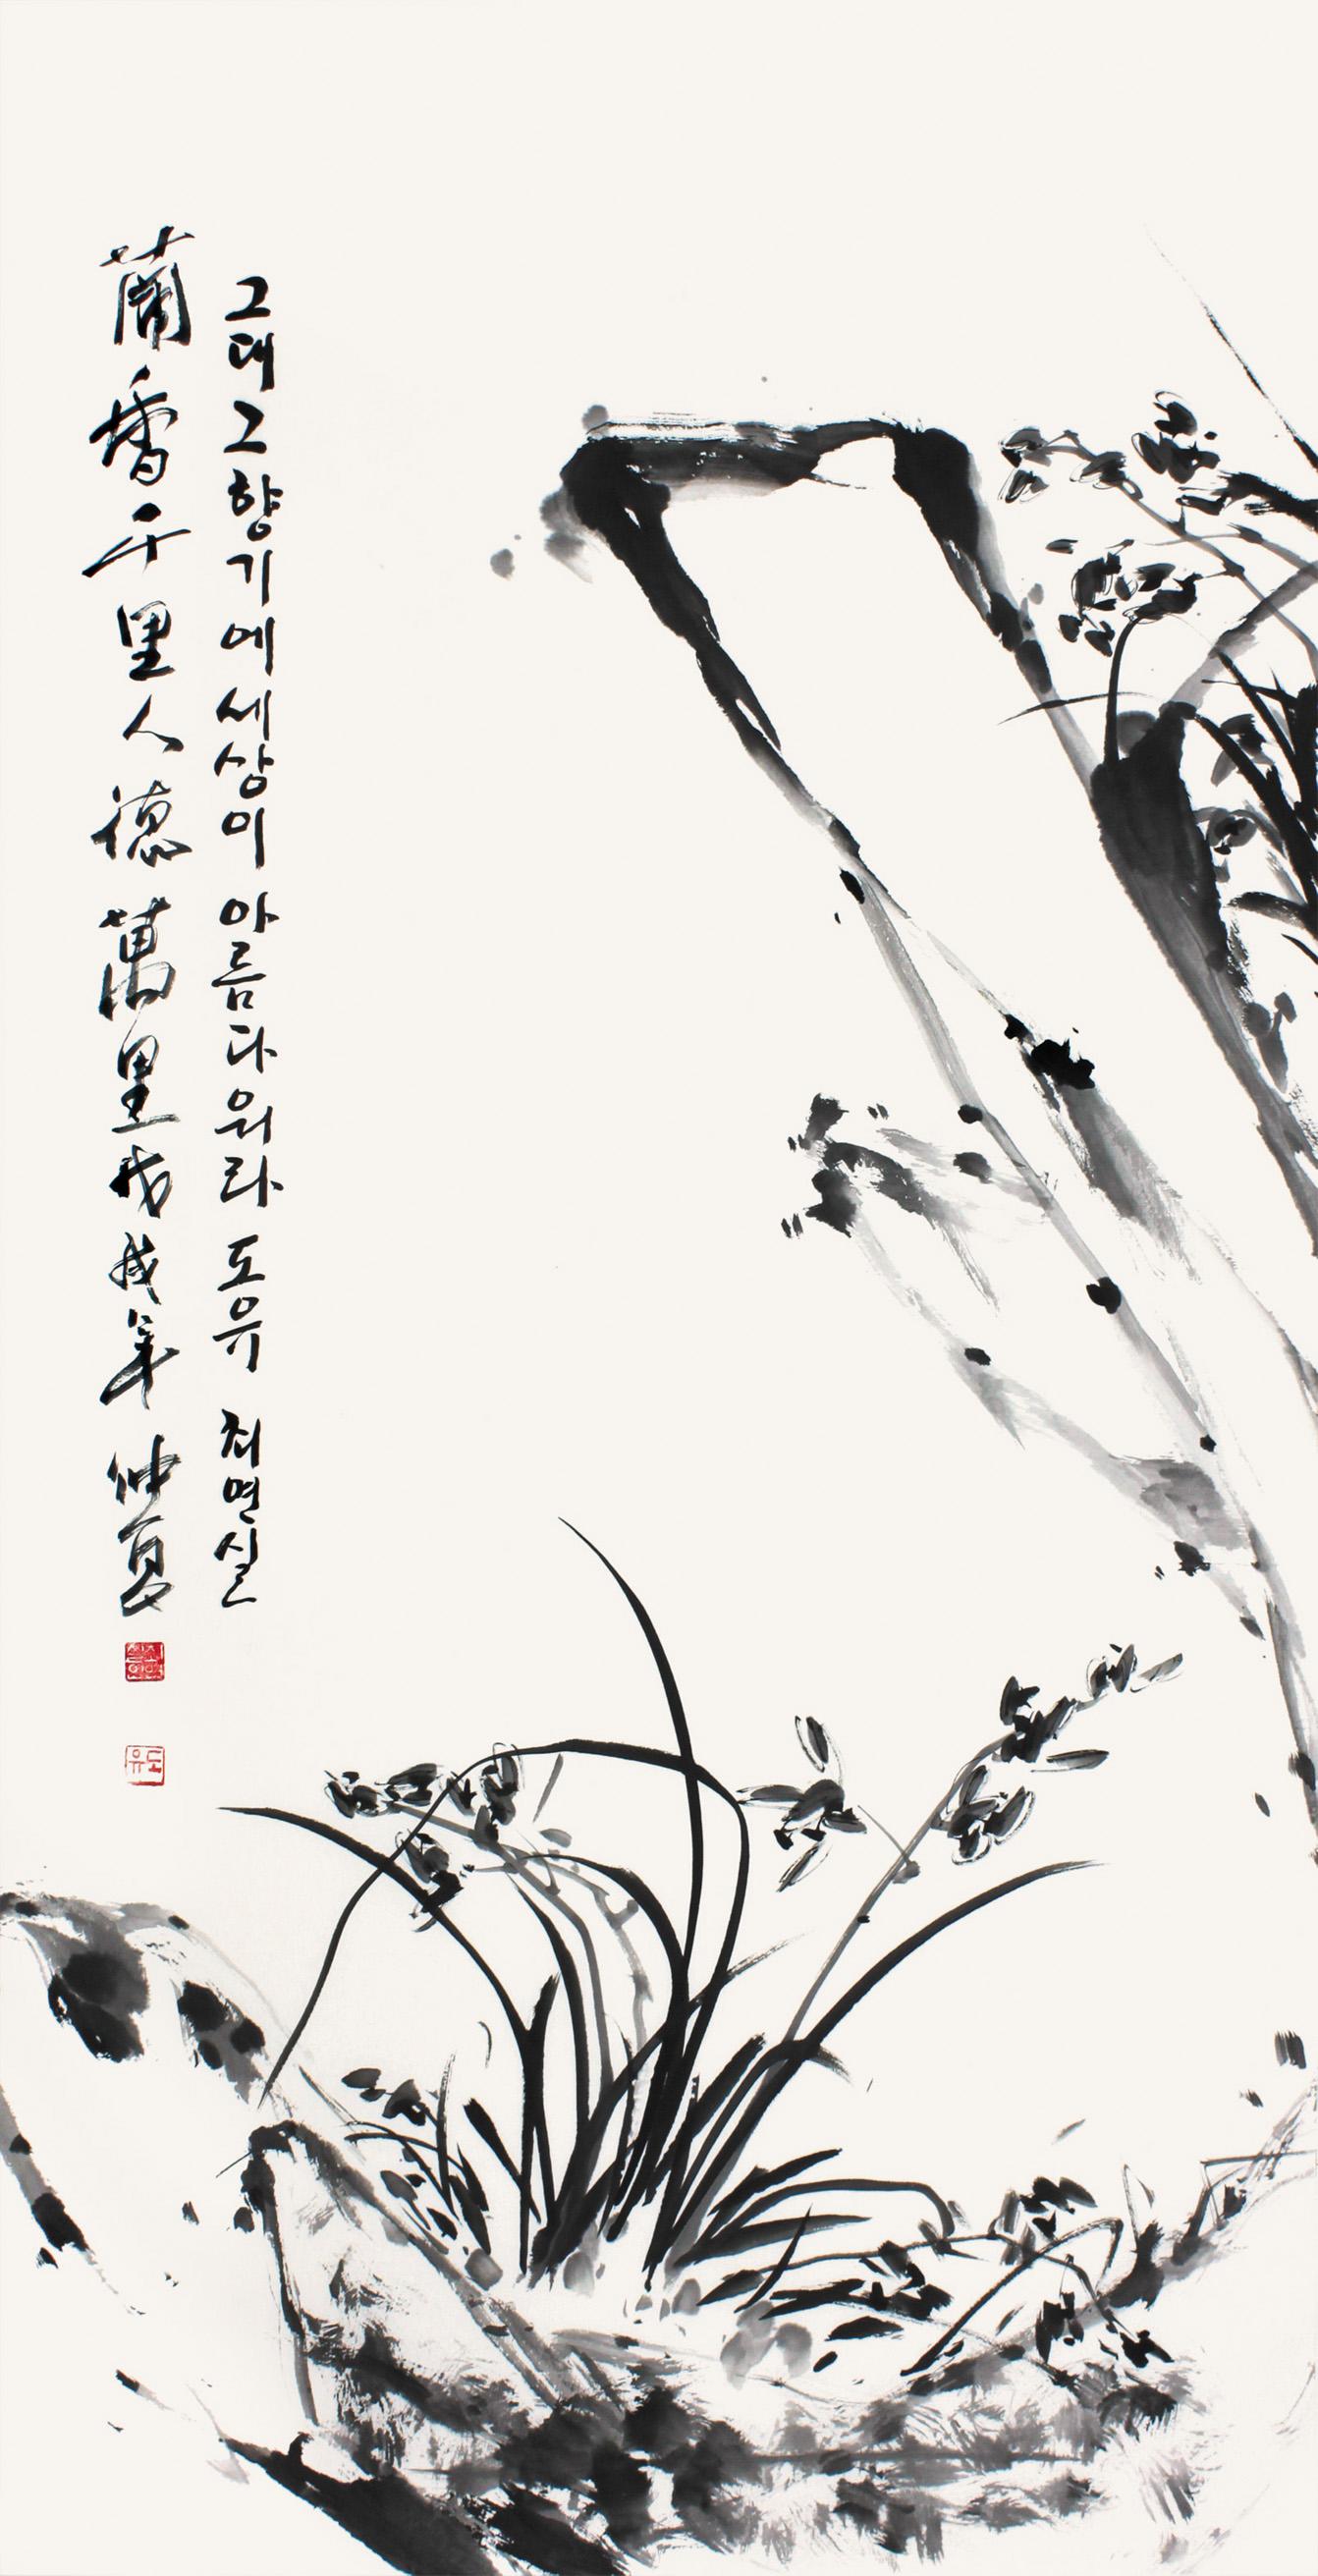 그대 그 향기에 세상이 아름다워라 도유 최면실
蘭香千里人德萬里戊戌年仲夏
도유